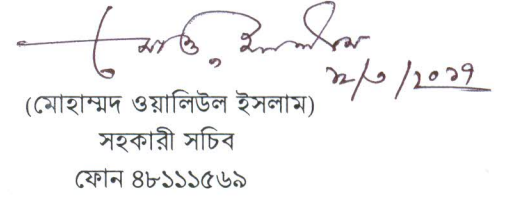 (মোহাম্মদ ওয়ালিউল ইসলাম)
সহকারী সচিব
ফোন ৪৮১১১৫৬৯